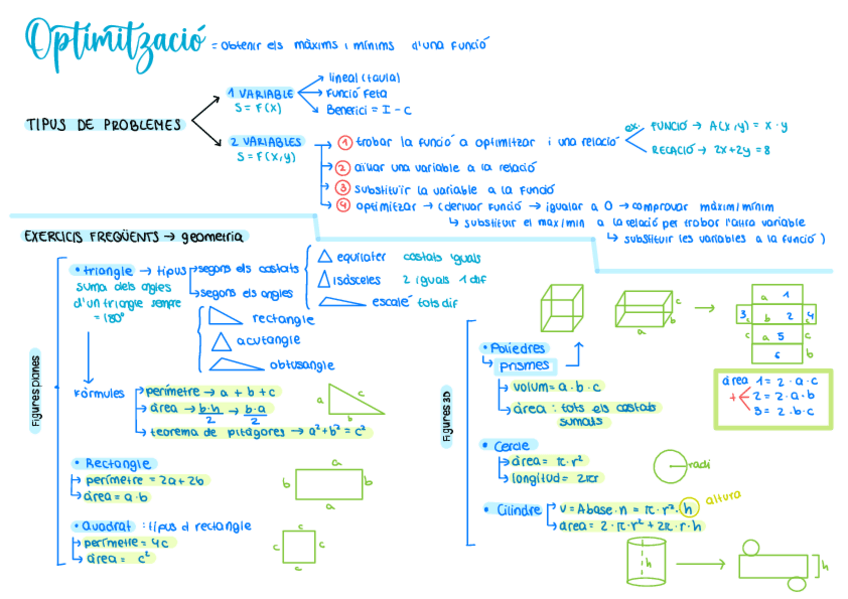 Optimització = obtenir els màxims i mínims d'una funció
TIPUS DE PROBLEMES
1 VARIABLE
S = F(x)
lineal (taula)
Funció Feta
Benefici = I - C
2 VARIABLES
S = F(x,y)
1 trobar la funció a optimitzar i una relació
ex. FUNCIÓ → A(x,y) = x · y
RELACIÓ → 2x+2y = 8
2 aïllar una variable a la relació
3 substituïr la variable a la funció
4 optimitzar → (derivar funció → igualar a 0 → comprovar màxim/mínim
↳ substituir el max/min a la relació per trobar l'altra variable
↳ substituir les variables a la funció)
EXERCICIS FREQÜENTS → geometria
Figures planes
• triangle → tipus
suma dels angles
d'un triangle sempre
= 180º
segons els costats
equilàter costats iguals
isósceles 2 iguals 1 dif
escalé tots dif
segons els angles
rectangle
acutangle
obtusangle
Fórmules
perímetre → a + b + c
àrea → b·h/2 → b·a/2
teorema de pitàgores → a²+b² = c²
a
c
b
• Rectangle
perímetre = 2a + 2b
àrea = a·b
a
b
b
a
• Quadrat : tipus d rectangle
perímetre = 4c
àrea = c²
c
c
c
c
Figures 3D
• Poliedres
prismes
volum = a·b·c
àrea : tots els costats
sumats
c
b
a
a 1
3 b 2 4
c c
a 5 c
6 b
àrea 1 = 2·a·c
+ 2 = 2·a·b
3 = 2·b·c
• Cercle
àrea = π·r²
longitud = 2πr
radi
• Cilindre
V = Abase·h = π·r²·h
altura
àrea = 2·π·r² + 2π·r·h
h
h